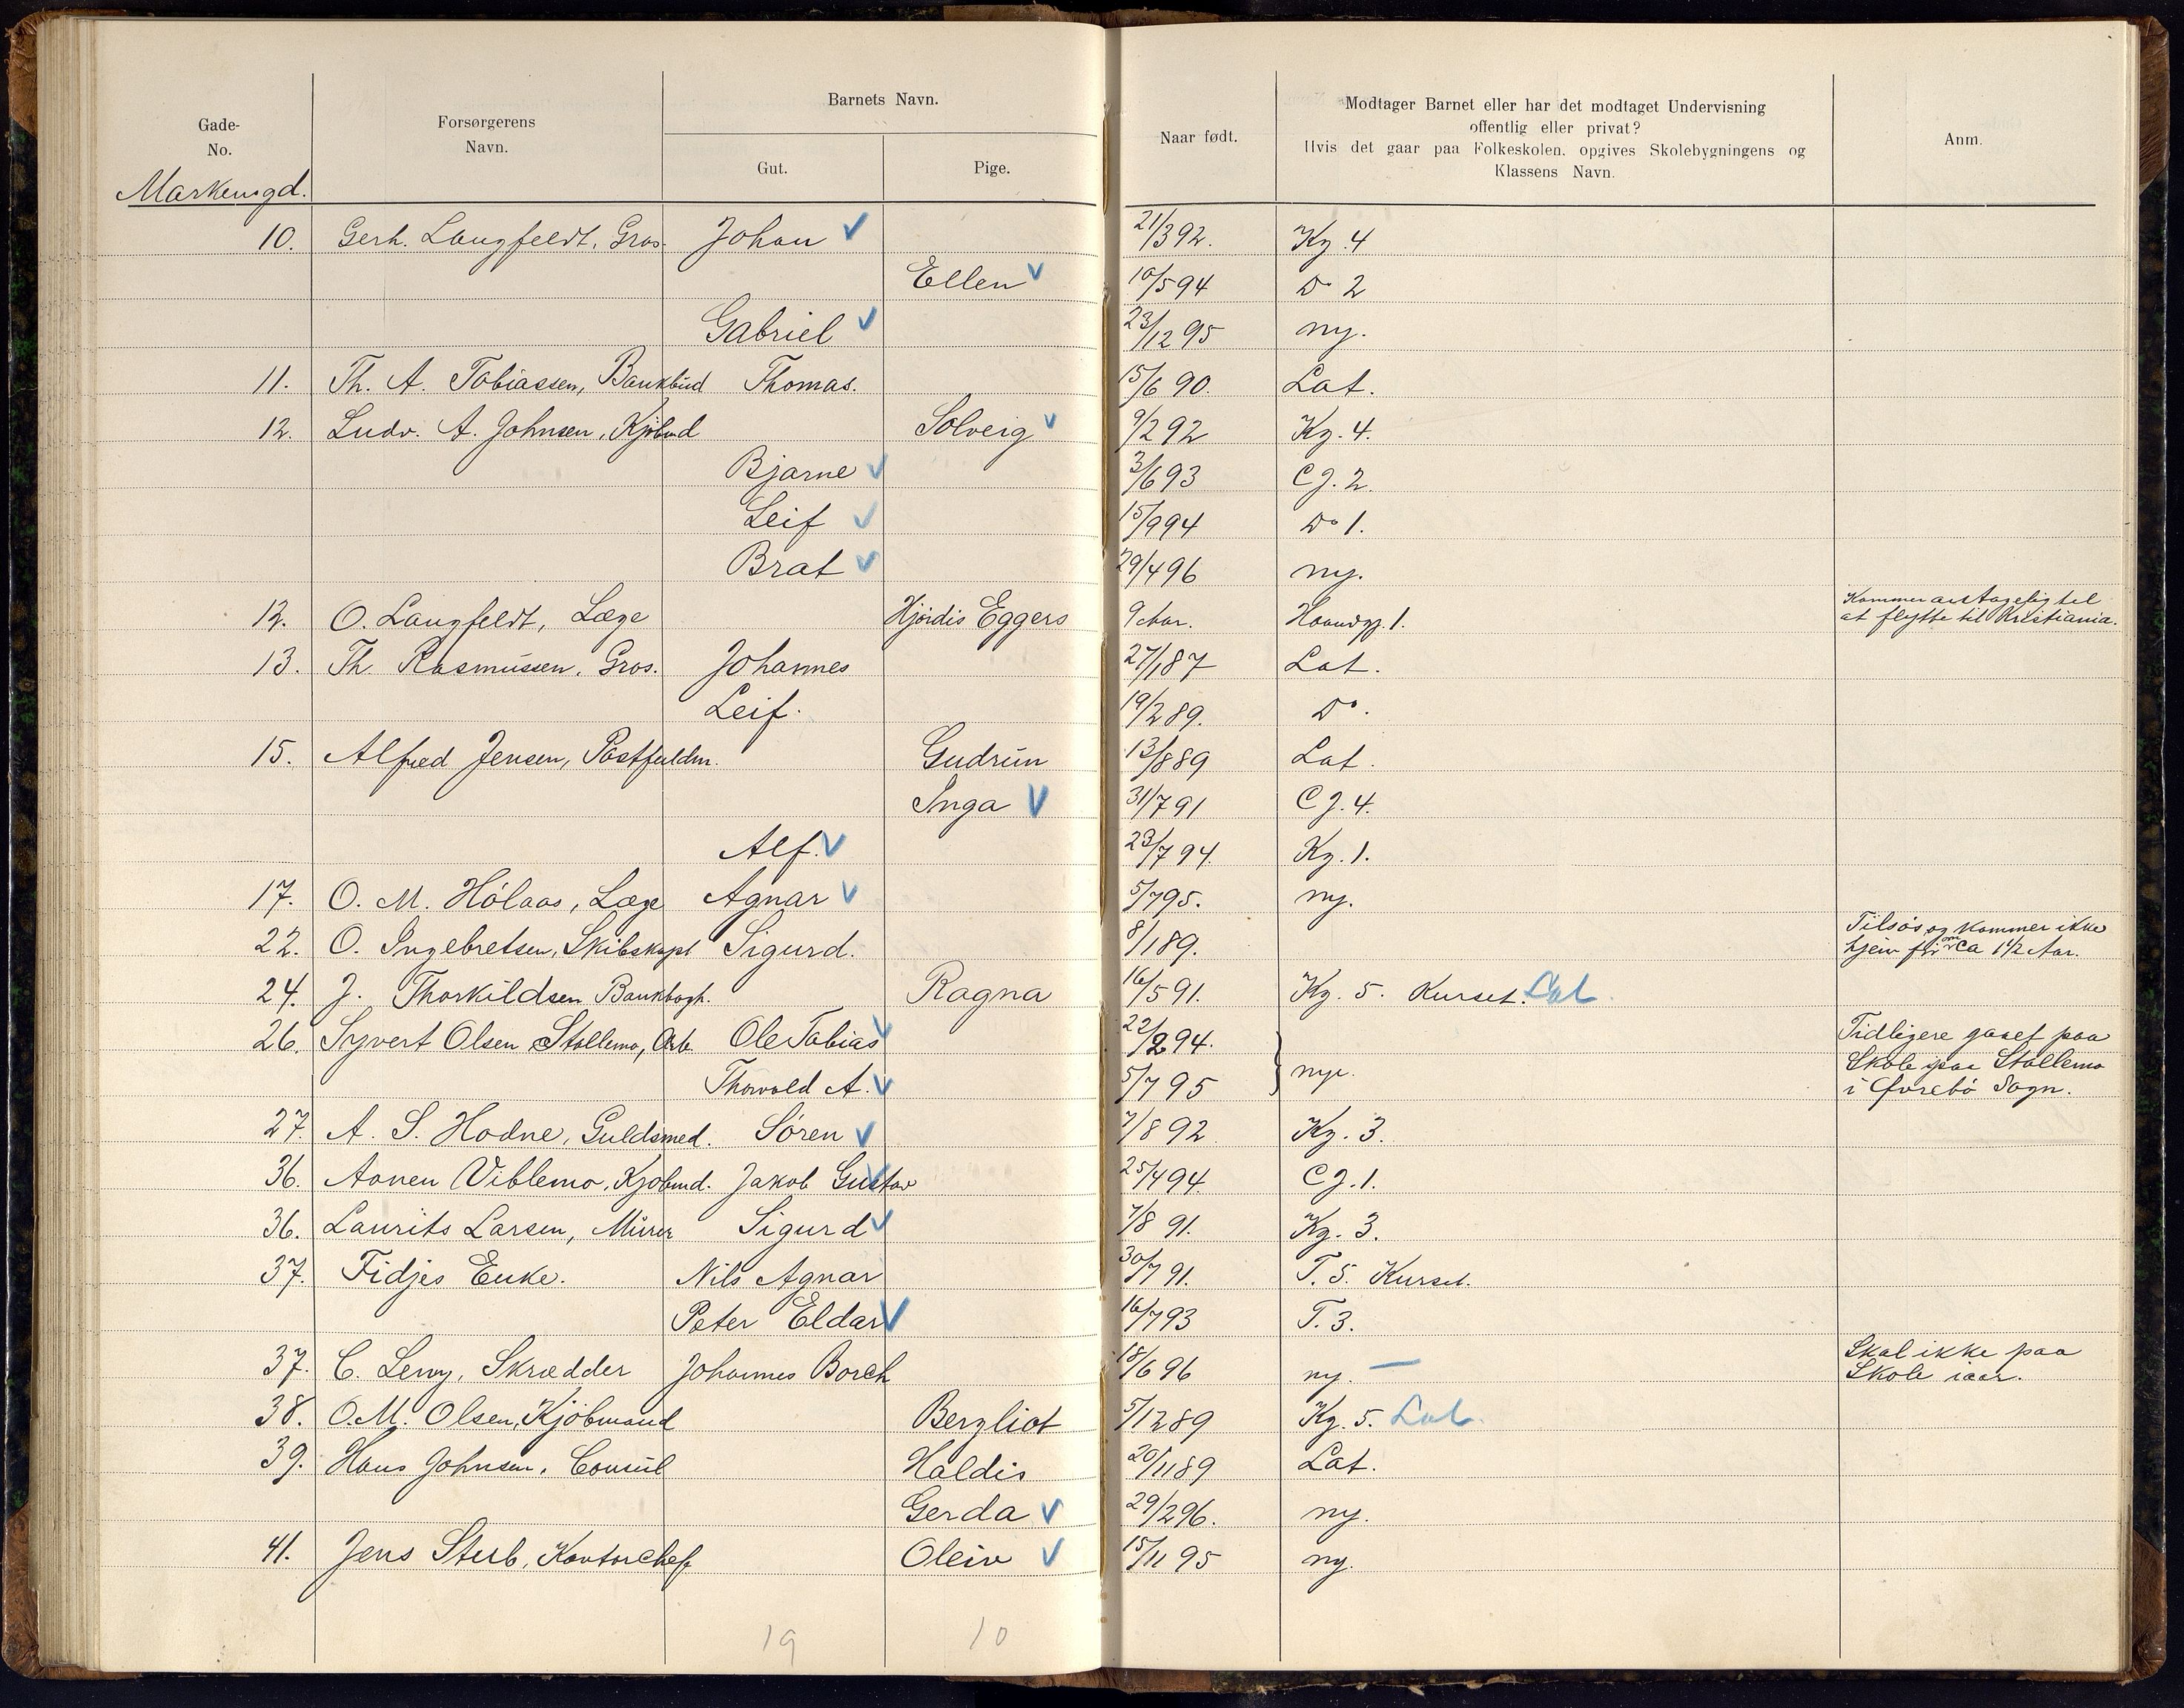 Gade-
No.
Forsørgerens
Navn.
Barnets Navn.
Gut.
Pige.
Naar født.
Modtager Barnet eller har det modtaget Undervisning
offentlig eller privat?
Hvis det gaar paa Folkeskolen, opgives Skolebygningens og
Klassens Navn.
Anm.
Markensgd.
10. Gerh. Langfeldt, Gros. Johan 21/3 92. Kg. 4
Ellen 10/5 94 Do 2
Gabriel 23/12 95 ny.
11. Th. A. Tobiassen, Bankbud Thomas. 15/6 90. Lat.
12. Ludv. A. Johnsen, Kjöbmd Solveig 9/2 92 Kg. 4.
Bjarne 3/6 93 CJ. 2.
Leif 15/9 94 Do 1.
Brat 29/4 96 ny.
12. O. Langfeldt, Læge Hjördis Eggers 9 Aar. 1. Kommer antagelig til
at flytte til Kristiania.
13. Th. Rasmussen, Gros. Johannes 27/1 87 Lat.
Leif. 19/2 89. Do.
15. Alfred Jensen, Postfuldm. Gudrun 13/8 89 Lat.
Inga 31/7 91 CJ. 4.
Alf. 23/7 94. Kg. 1.
17. O. M. Hólaas, Læge Agnar 5/7 95. ny.
22. O. Ingebretsen, Skibskapt Sigurd. 8/1 89. Tilsös og kommer ikke
hjem för om ca 1 1/2 Aar.
24. J. Thorkildsen Bankbogh. Ragna 16/5 91. Kg. 5. Kurset. Lat
26. Syvert Olsen Stallemo, Arb. Ole Tobias 22/2 94. Tidligere gaaet paa
Thorvald A. 5/7 95 nye. Skole paa Stallemo
i Øvrebö Sogn.
27. A. S. Hodne, Guldsmed. Sören 7/8 92 Kg. 3.
36. Aanen Viblemo, Kjöbmd. Jakob Gustav 25/4 94. CJ. 1.
36. Laurits Larsen, Murer Sigurd 7/8 91. Kg. 3.
37. Fidjes Enke. Nils Agnar 30/7 91. T. 5. Kurset.
Peter Eldar 16/7 93 T. 3.
37. C. Levy, Skrædder Johannes Borch 18/6 96 ny. — Skal ikke paa
Skole iaar.
38. O.M. Olsen, Kjöbmand Bergliot 5/12 89 Kg. 5. Lat.
39. Hans Johnsen, Consul Haldis 20/11 89 Lat.
Gerda 29/2 96. ny.
41. Jens Stub, Kontorchef Oleiv 15/11 95 ny.
19 10